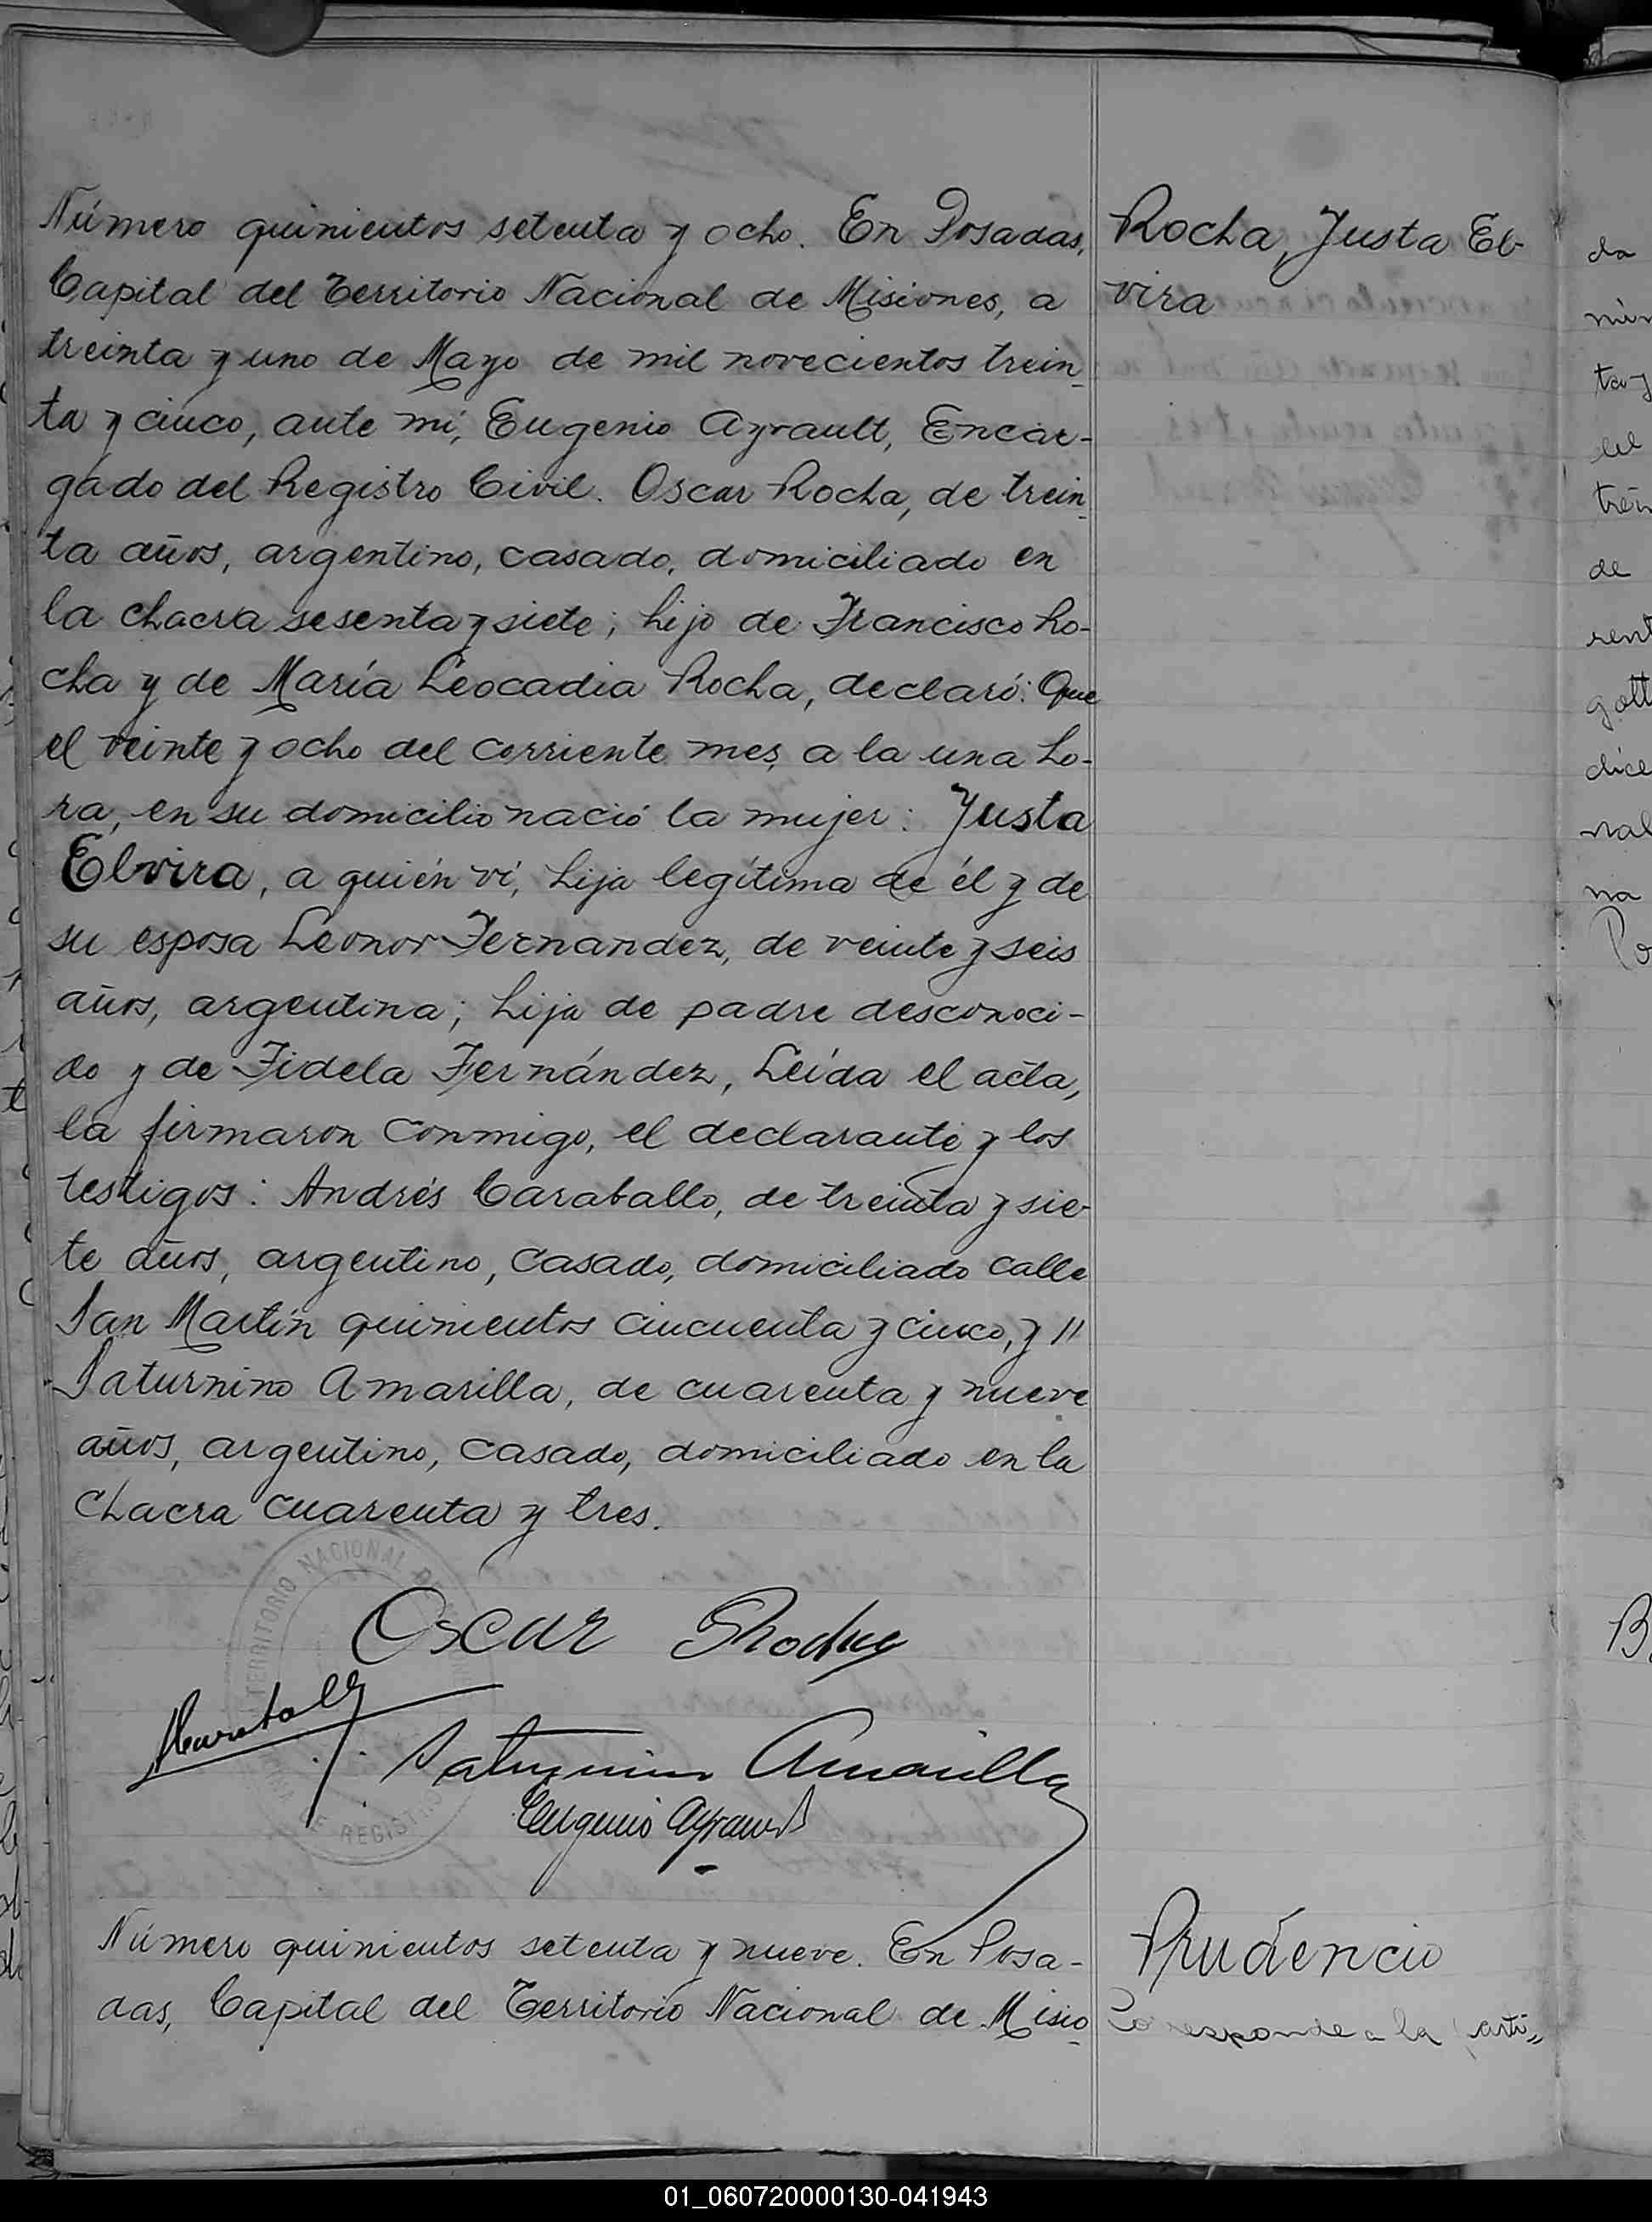 Número quinientos setenta y ocho. En Posadas,
Capital del Territorio Nacional de Misiones, a
treinta y uno de Mayo de mil novecientos trein-
ta y cinco, ante mí, Eugenio Ayrault, Encar-
gado del Registro Civil. Oscar Rocha, de trein-
ta años, argentino, casado, domiciliado en
la chacra sesenta y siete; hijo de Francisco Ro-
cha y de María Leocadia Rocha, declaró: Que
el veinte y ocho del corriente mes, a la una ho-
ra, en su domicilio nació la mujer: Justa
Elvira, a quién ví, hija legítima de él y de
su esposa Leonor Fernandez, de veinte y seis
años, argentina; hija de padre desconoci-
do y de Fidela Fernández, Leída el acta,
la firmaron conmigo, el declarante y los
testigos: Andrés Caraballo, de treinta y sie-
te años, argentino, casado, domiciliado calle
San Martín quinientos cincuenta y cinco, y //
Saturnino Amarilla, de cuarenta y nueve
años, argentino, casado, domiciliado en la
chacra cuarenta y tres.
Rocha, Justa El-
vira
TERRITORIO NACIONAL DE
REGISTRO
Oscar Rocha
Saturnino Amarilla
Eugenio Ayrault
Número quinientos setenta y nueve. En Posa-
das, Capital del Territorio Nacional de Misio-
Prudencio
Corresponde a la parti=
da
ta y
de
Po
01_060720000130-041943